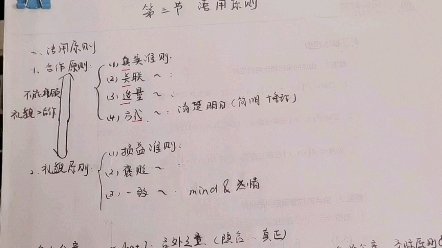 第三节 语用原则
一、语用原则
1. 合作原则
(1) 真实准则:
(2) 关联 ~ :
(3) 适量 ~ :
(4) 方式 ~ : 清楚明白(何明
不能兼顾
礼貌>合作
2. 礼貌原则
(1) 损益准则:
(2) 褒贬 ~ :
(3) 一致 ~ : mind & 感情
言外之意 (隐含 真正)